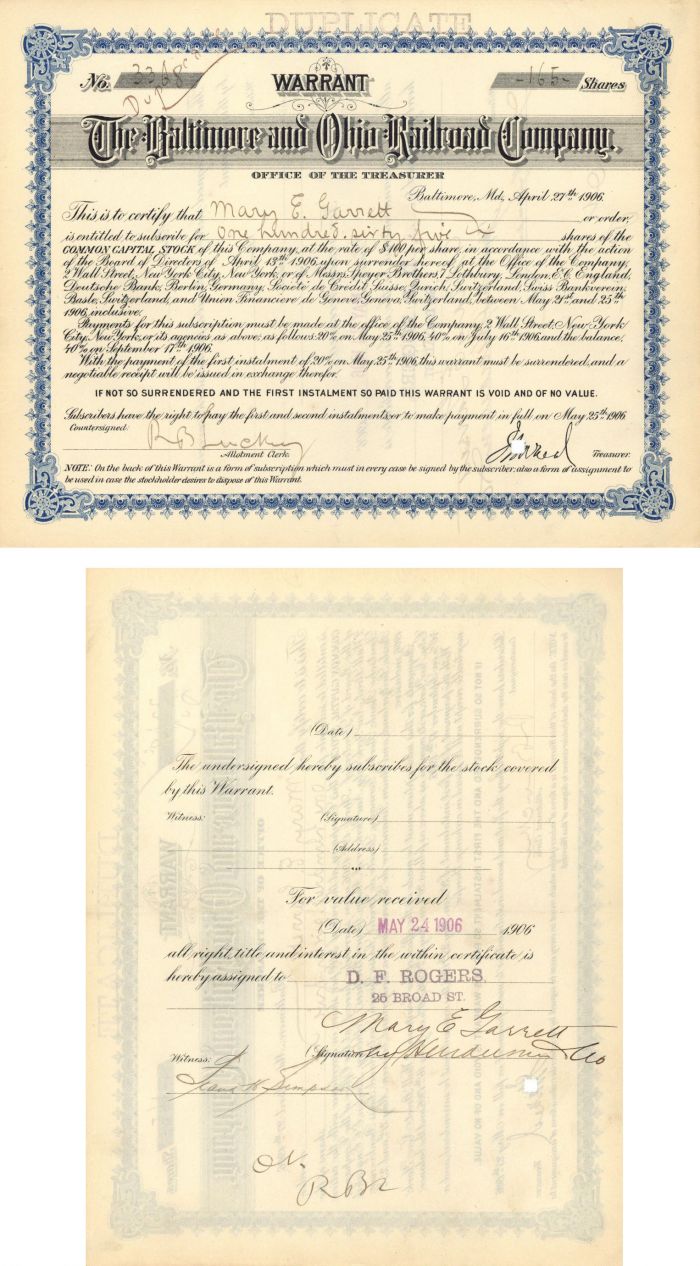 DUPLICATE
No. 3368 WARRANT -165- Shares
Duplicate
The Baltimore and Ohio Railroad Company.
OFFICE OF THE TREASURER
Baltimore, Md., April 27th 1906.
This is to certify that Mary E. Garrett or order,
is entitled to subscribe for One hundred sixty five shares of the
COMMON CAPITAL STOCK of this Company, at the rate of $100 per share, in accordance with the action
of the Board of Directors of April 13th 1906, upon surrender hereof at the Office of the Company,
2 Wall Street, New York City, New York, or of Messrs. Speyer Brothers, 7 Lothbury, London, E.C. England,
Deutsche Bank, Berlin, Germany, Société de Crédit Suisse, Zurich, Switzerland, Swiss Bankverein,
Basle, Switzerland, and Union Financiere de Geneve, Geneva, Switzerland, between May 21st and 25th
1906, inclusive.
Payments for this subscription must be made at the office of the Company, 2 Wall Street, New York
City, New York, or its agencies as above, as follows: 20% on May 25th 1906, 40% on July 16th 1906, and the balance,
40% on September 17th 1906.
With the payment of the first instalment of 20% on May 25th 1906, this warrant must be surrendered, and a
negotiable receipt will be issued in exchange therefor.
IF NOT SO SURRENDERED AND THE FIRST INSTALMENT SO PAID THIS WARRANT IS VOID AND OF NO VALUE.
Subscribers have the right to pay the first and second instalments, or to make payment in full on May 25th 1906.
Countersigned:
Allotment Clerk. Treasurer.
NOTE: On the back of this Warrant is a form of subscription which must in every case be signed by the subscriber; also a form of assignment to
be used in case the stockholder desires to dispose of this Warrant.
(Date)
The undersigned hereby subscribes for the stock covered
by this Warrant.
Witness: (Signature)
(Address)
For value received
(Date) MAY 24 1906 1906
all right, title and interest in the within certificate is
hereby assigned to D. F. ROGERS.
25 BROAD ST.
Mary E Garrett
Witness: (Signature) by Henderson & Co
Simpson